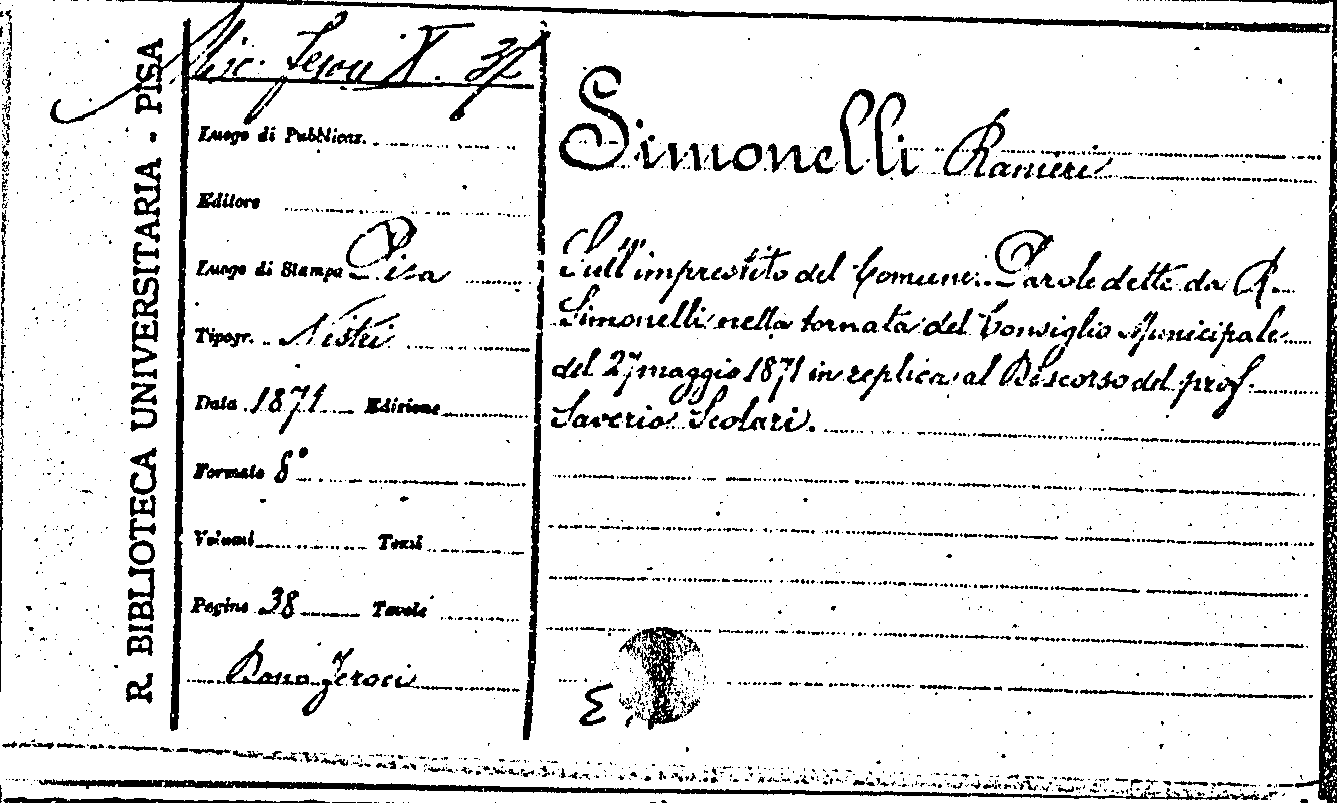 R. BIBLIOTECA UNIVERSITARIA - PISA
Misc. Feroci X. 37
Luogo di Pubblicaz.
Editore
Luogo di Stampa Pisa
Tipogr. Nistri
Data 1871 Edizione
Formato 8°
Volumi Tomi
Pagine 38 Tavole
Dono Feroci
Simonelli Ranieri
Sull'imprestito del Comune. Parole dette da R.
Simonelli nella tornata del Consiglio Municipale
del 27 maggio 1871 in replica al Discorso del prof.
Saverio Scolari.